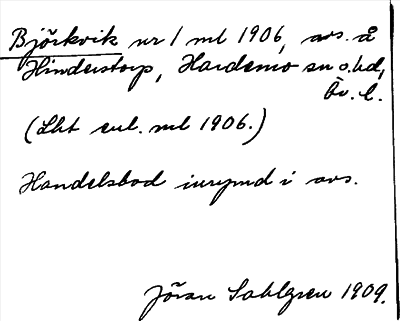 Björkvik nr 1 ml 1906, avs. å
Hinderstorp, Hardemo sn o. hd,
Ör. l.
(Lht enl. ml 1906.)
Handelsbod inrymd i avs.
Jöran Sahlgren 1909.